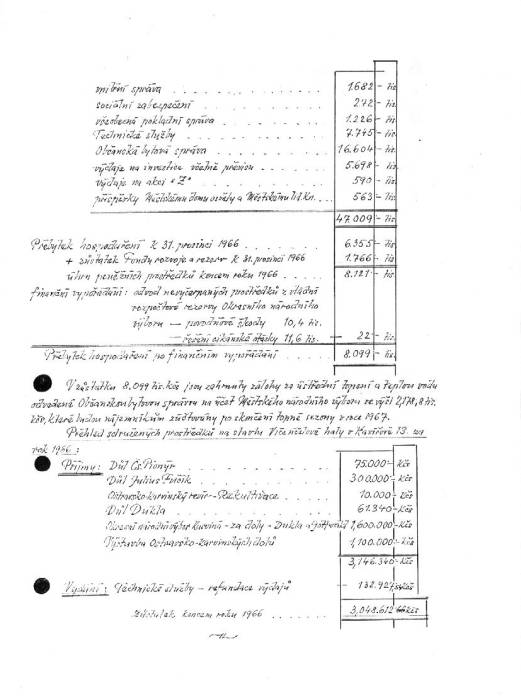 vnitřní správa . . . . . . . . . . . 1.682 - tis.
sociální zabezpečení . . . . . . . . 272 - tis.
všeobecná pokladní správa . . . . . 1.226 - tis.
Technické služby . . . . . . . . . 7.745 - tis.
Občanská bytová správa . . . . . . 16.604 - tis.
výdaje na investice včetně převodu . . . . 5.698 - tis.
výdaje na akci "Z" . . . . . . . . 590 - tis.
příspěvky Městskému domu osvěty a Městskému lid. kn. . . . 563 - tis.
47.009 - tis.
Přebytek hospodaření k 31. prosinci 1966 . . . . . 6.355 - tis.
+ zůstatek Fondu rozvoje a rezerv k 31. prosinci 1966 1.766 - tis.
úhrn peněžních prostředků koncem roku 1966 . . . . 8.121 - tis.
finanční vypořádání: odvod nevyčerpaných prostředků z vládní
rozpočtové rezervy Okresního národního
výboru — povodňové škody 10,4 tis.
— řešení cikánské otázky 11,6 tis. — 22 - tis.
Přebytek hospodaření po finančním vypořádání 8.099 - tis.
V zůstatku 8.099 tis. Kčs jsou zahrnuty zálohy za ústřední topení a teplou vodu
odváděné Občanskou bytovou správou na účet Městského národního výboru ve výši 2,178,8 tis.
Kčs, které budou nájemníkům zúčtovány po skončení topné sezony v roce 1967.
Přehled sdružených prostředků na stavbu Víceúčelové haly v Karviné 13. za
rok 1966:
Příjmy: Důl Čs. Pionýr . . . . . . . 75.000 - Kčs
Důl Julius Fučík . . . . . . . 300.000 - Kčs
Ostravsko-karvinský revír - Rekultivace . . . . 10.000 - Kčs
Důl Dukla . . . . . . . 61.340 - Kčs
Okresní národní výbor Karviná - za doly - Dukla a Gottwald 1,600.000 - Kčs
Výstavba Ostravsko-karvinských dolů 1,100.000 - Kčs
3,146.340 - Kčs
Vydání: Technické služby - refundace výdajů — 132.927 Kčs
Zůstatek koncem roku 1966 . . . . . . 3,048.612 Kčs